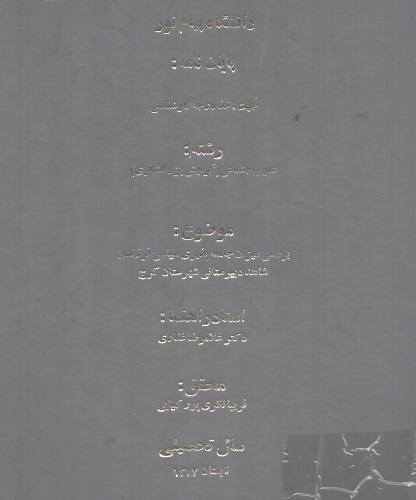 دانشگاه پیام نور
پایان نامه:
جهت اخذ درجه کارشناسی
رشته:
علوم اجتماعی (گرایش پژوهشگری)
موضوع:
بررسی میزان جامعه پذیری سیاسی فرزندان
شاهد دبیرستانی شهرستان کرج
استاد راهنما:
دکتر غلامرضا غفاری
محقق:
فریبا فقری پور
سال تحصیلی
تابستان